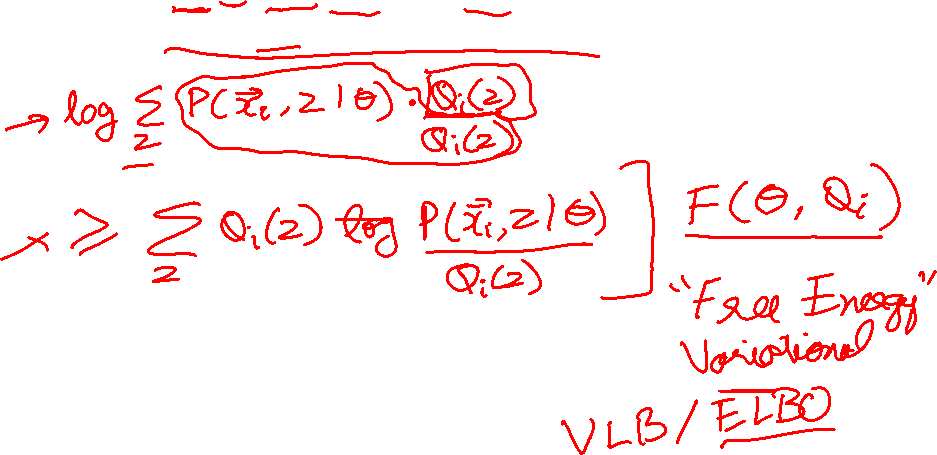 → log Σ_z P(x⃗ᵢ, z | θ) · Qᵢ(z) / Qᵢ(z)
≥ Σ_z Qᵢ(z) log P(x⃗ᵢ, z | θ) / Qᵢ(z) ] F(θ, Qᵢ)
"Free Energy"
Variational
VLB / ELBO